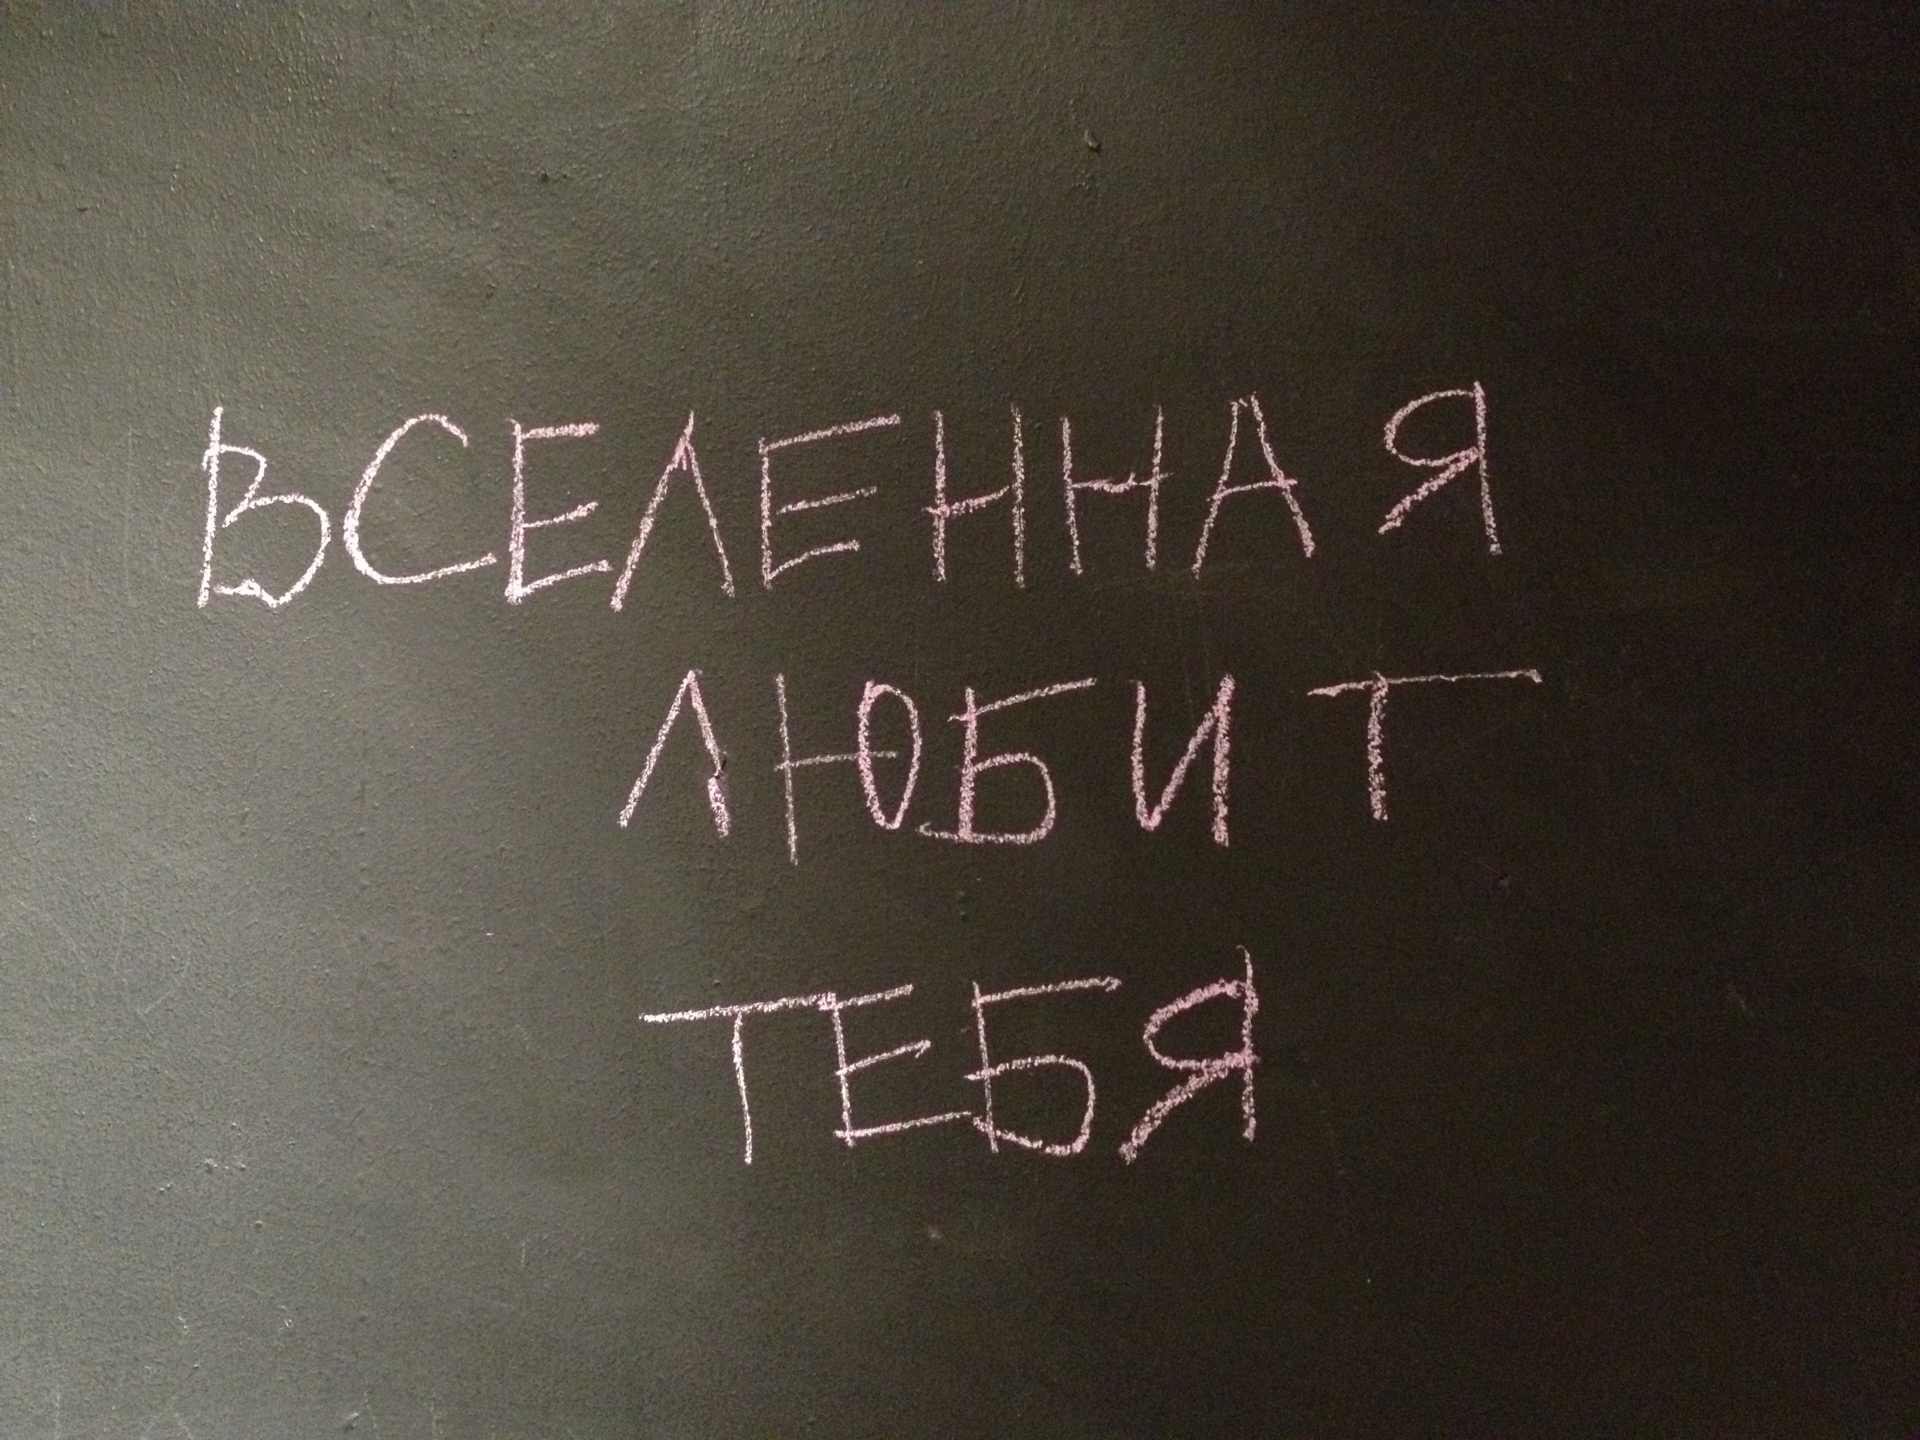 ВСЕЛЕННАЯ
ЛЮБИТ
ТЕБЯ